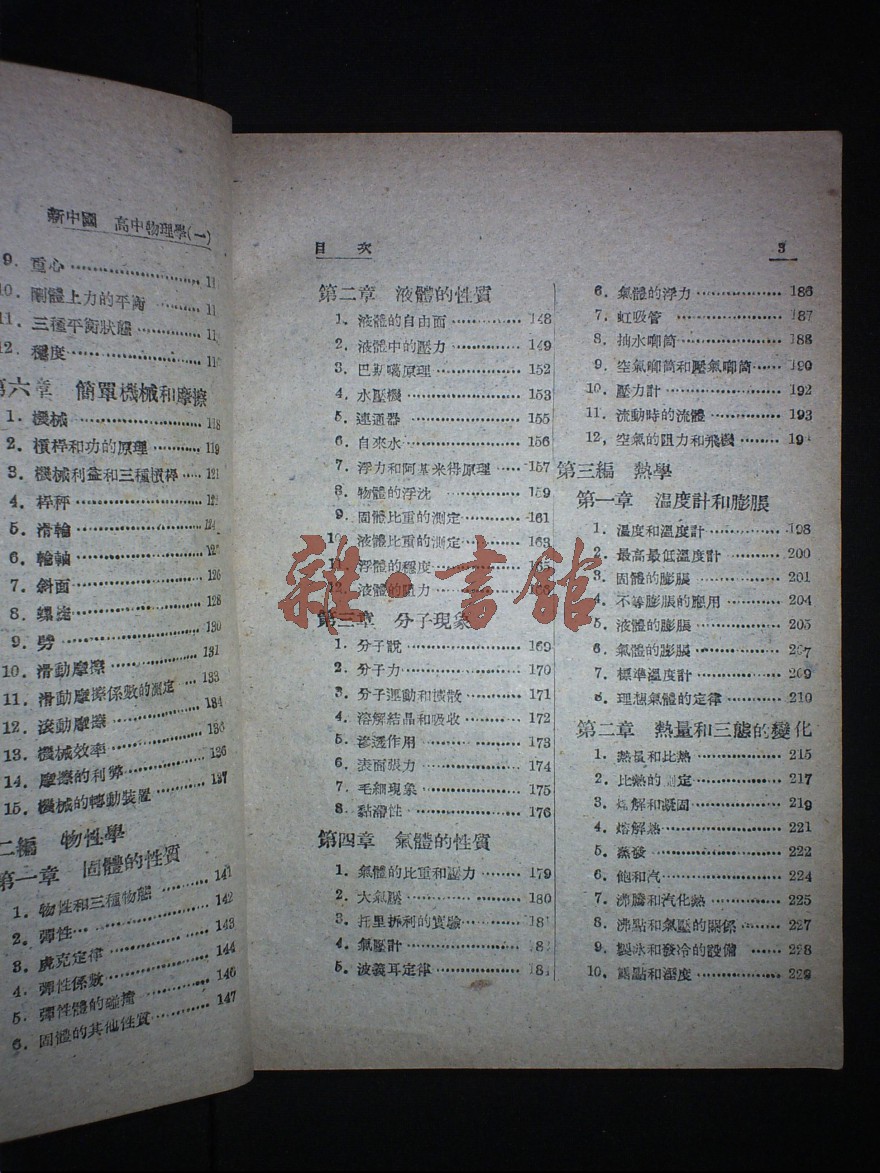 新中國 高中物理學(一)
9. 重心
10. 剛體上力的平衡
11. 三種平衡狀態
12. 穩度
第六章 簡單機械和摩擦
1. 機械 118
2. 槓桿和功的原理 119
3. 機械利益和三種槓桿 121
4. 桿秤
5. 滑輪
6. 輪軸
7. 斜面 126
8. 螺旋 128
9. 劈 130
10. 滑動摩擦 131
11. 滑動摩擦係數的測定 133
12. 滾動摩擦 134
13. 機械效率 136
14. 摩擦的利弊 136
15. 機械的轉動裝置 137
二編 物性學
第一章 固體的性質
1. 物性和三種物態 141
2. 彈性 142
3. 虎克定律 143
4. 彈性係數 144
5. 彈性體的碰撞 146
6. 固體的其他性質 147
目 次 3
第二章 液體的性質
1. 液體的自由面 148
2. 液體中的壓力 149
3. 巴斯噶原理 152
4. 水壓機 153
5. 連通器 155
6. 自來水 156
7. 浮力和阿基米得原理 157
8. 物體的浮沈 159
9. 固體比重的測定 161
10. 液體比重的測定 163
11. 浮體的穩度 165
12. 液體的阻力
第三章 分子現象
1. 分子說 169
2. 分子力 170
3. 分子運動和擴散 171
4. 溶解結晶和吸收 172
5. 滲透作用 173
6. 表面張力 174
7. 毛細現象 175
8. 黏滯性 176
第四章 氣體的性質
1. 氣體的比重和壓力 179
2. 大氣壓 180
3. 托里拆利的實驗 181
4. 氣壓計
5. 波義耳定律
6. 氣體的浮力 186
7. 虹吸管 187
8. 抽水唧筒 188
9. 空氣唧筒和壓氣唧筒 190
10. 壓力計 192
11. 流動時的流體 193
12. 空氣的阻力和飛機
第三編 熱學
第一章 溫度計和膨脹
1. 溫度和溫度計 198
2. 最高最低溫度計 200
3. 固體的膨脹 201
4. 不等膨脹的應用 204
5. 液體的膨脹 205
6. 氣體的膨脹 207
7. 標準溫度計 209
8. 理想氣體的定律 210
第二章 熱量和三態的變化
1. 熱量和比熱 215
2. 比熱的測定 217
3. 熔解和凝固 219
4. 熔解熱 221
5. 蒸發 222
6. 飽和汽 224
7. 沸騰和汽化熱 225
8. 沸點和氣壓的關係 227
9. 製冰和發冷的設備 228
10. 露點和溼度 229
雜·書館